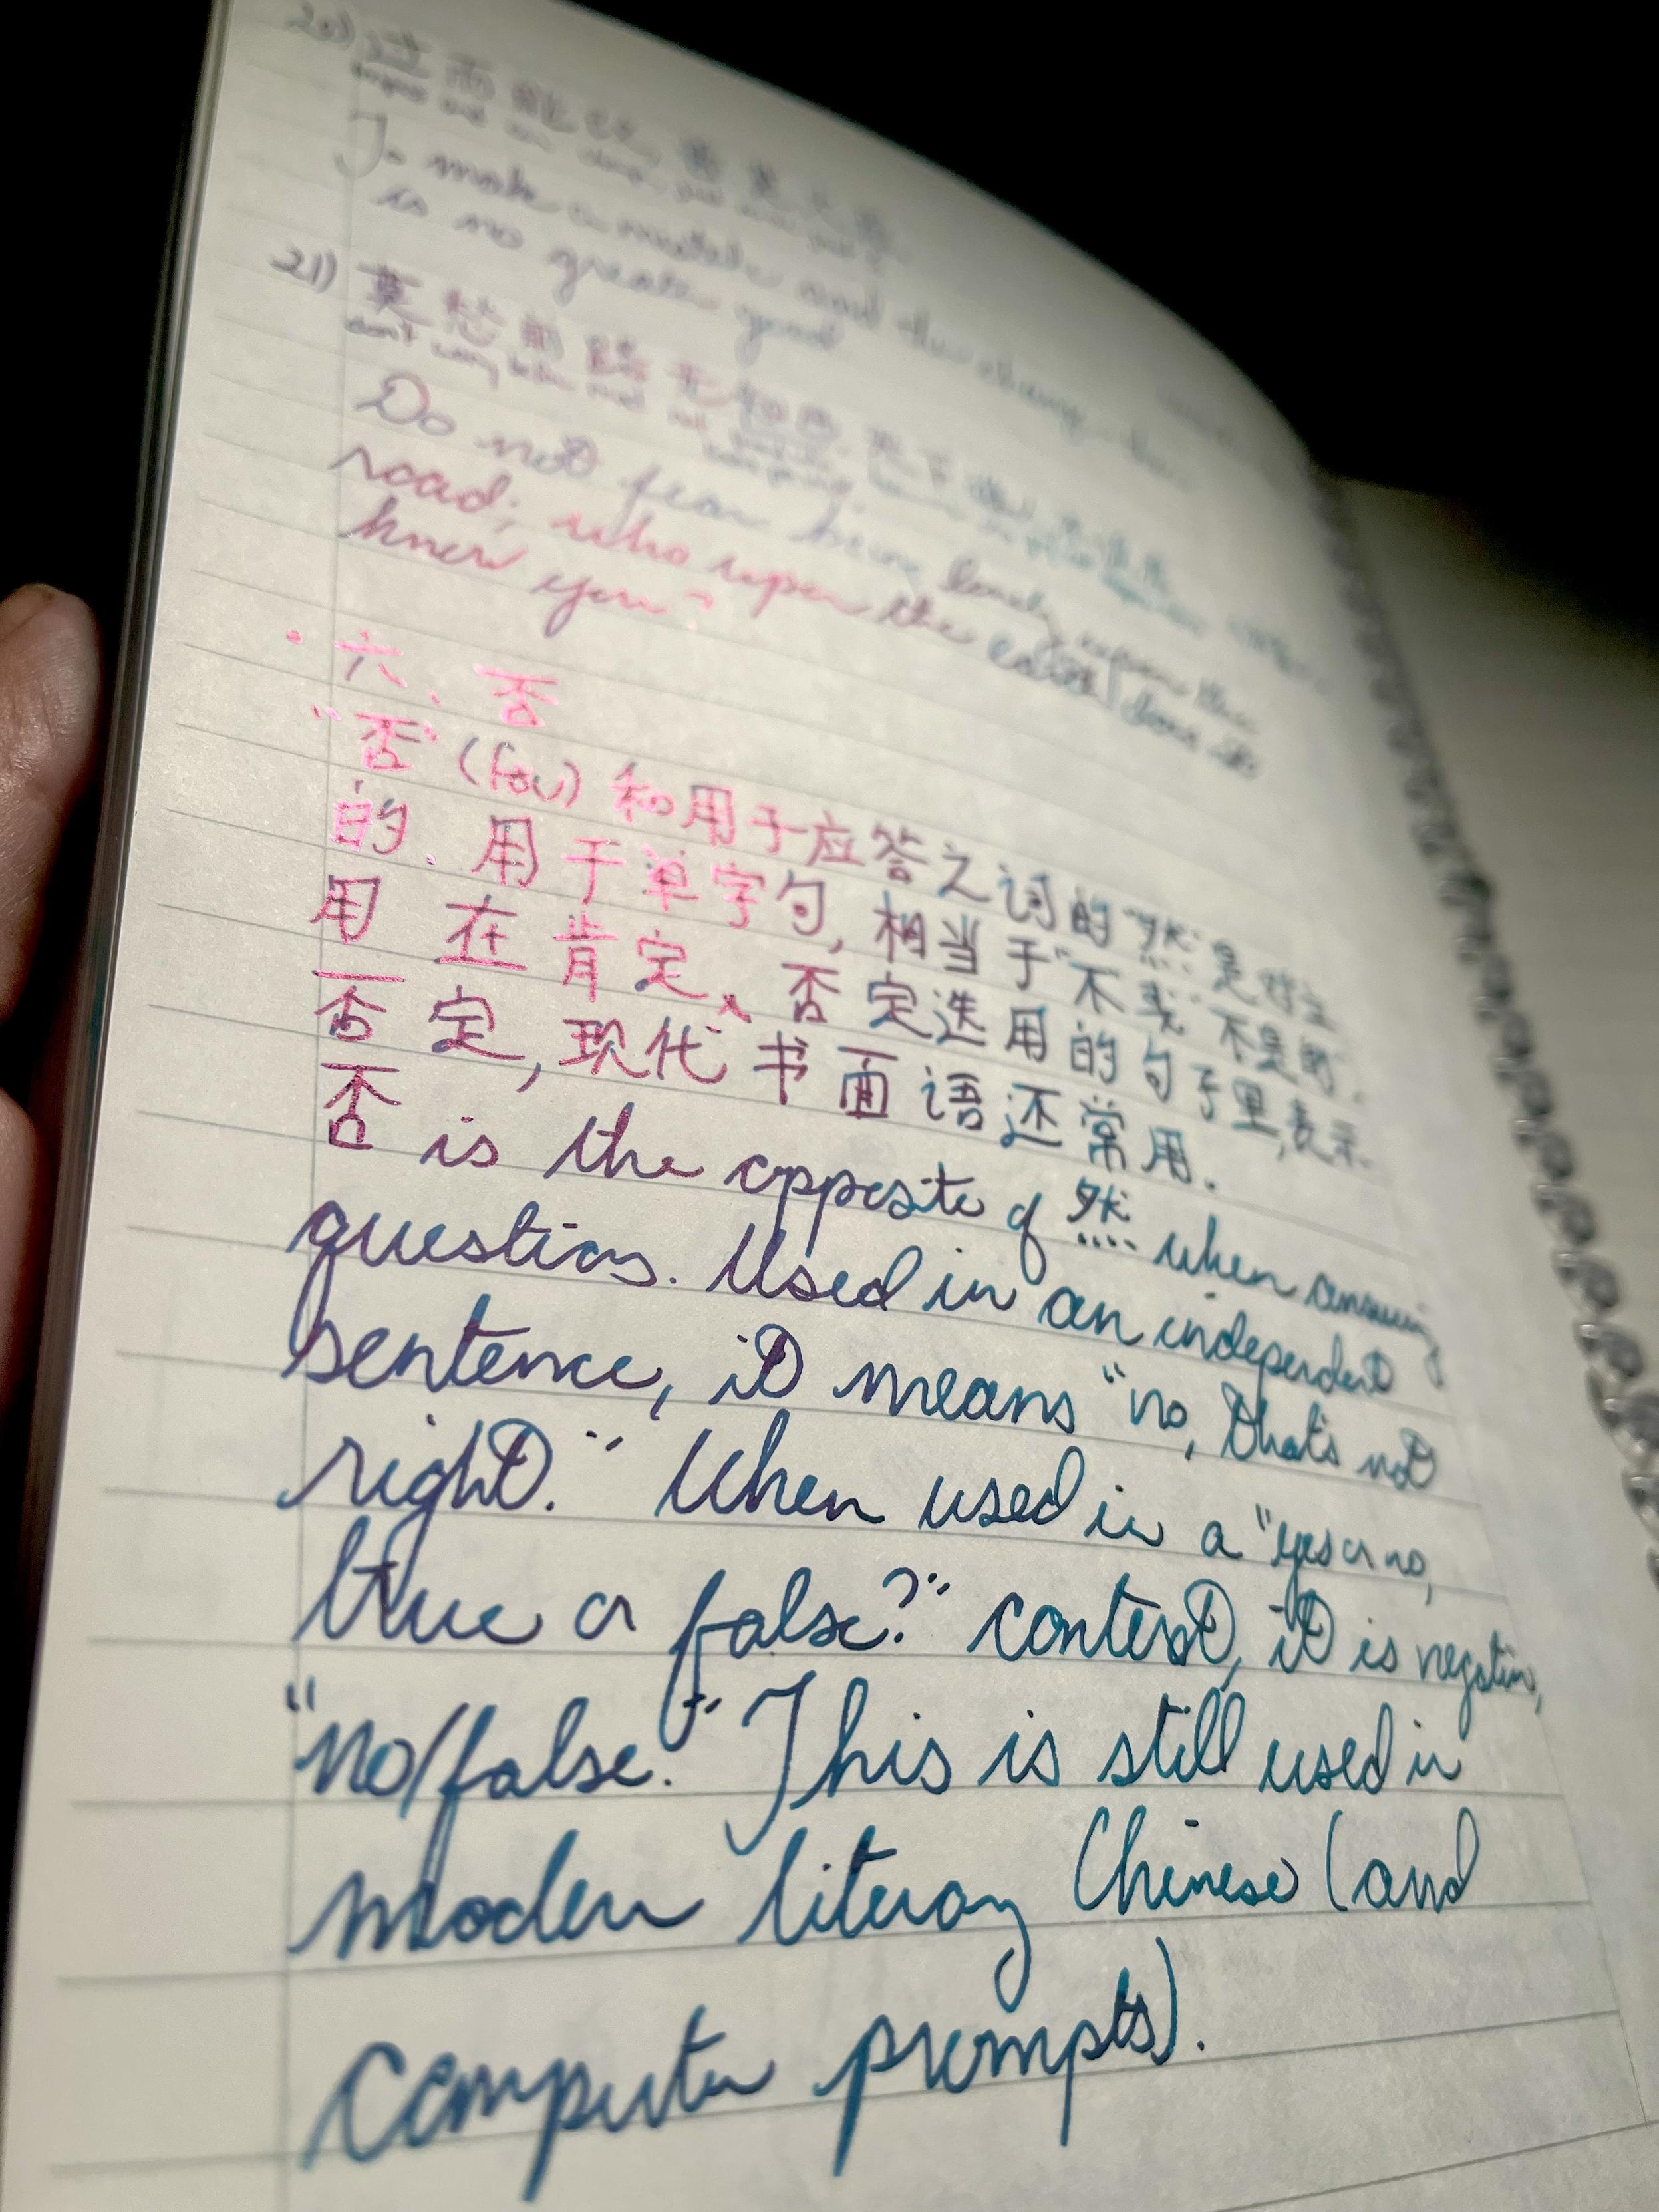 20) 过而能改, 善莫大焉
To make a mistake and then change, there
is no greater good
21) 莫愁前路无知己, 天下谁人不识君
don't worry before road
Do not fear being lonely upon the
road; who upon the earth does not
know you?
六、否
"否" (fǒu) 和用于应答之词的"然"是对立
的. 用于单字句, 相当于"不""不是的".
用在肯定、否定迭用的句子里, 表示
否定, 现代书面语还常用.
否 is the opposite of 然 when answering
questions. Used in an independent
sentence, it means "no, that's not
right." When used in a "yes or no,
true or false?" context, it is negative,
"no/false." This is still used in
modern literary Chinese (and
computer prompts).